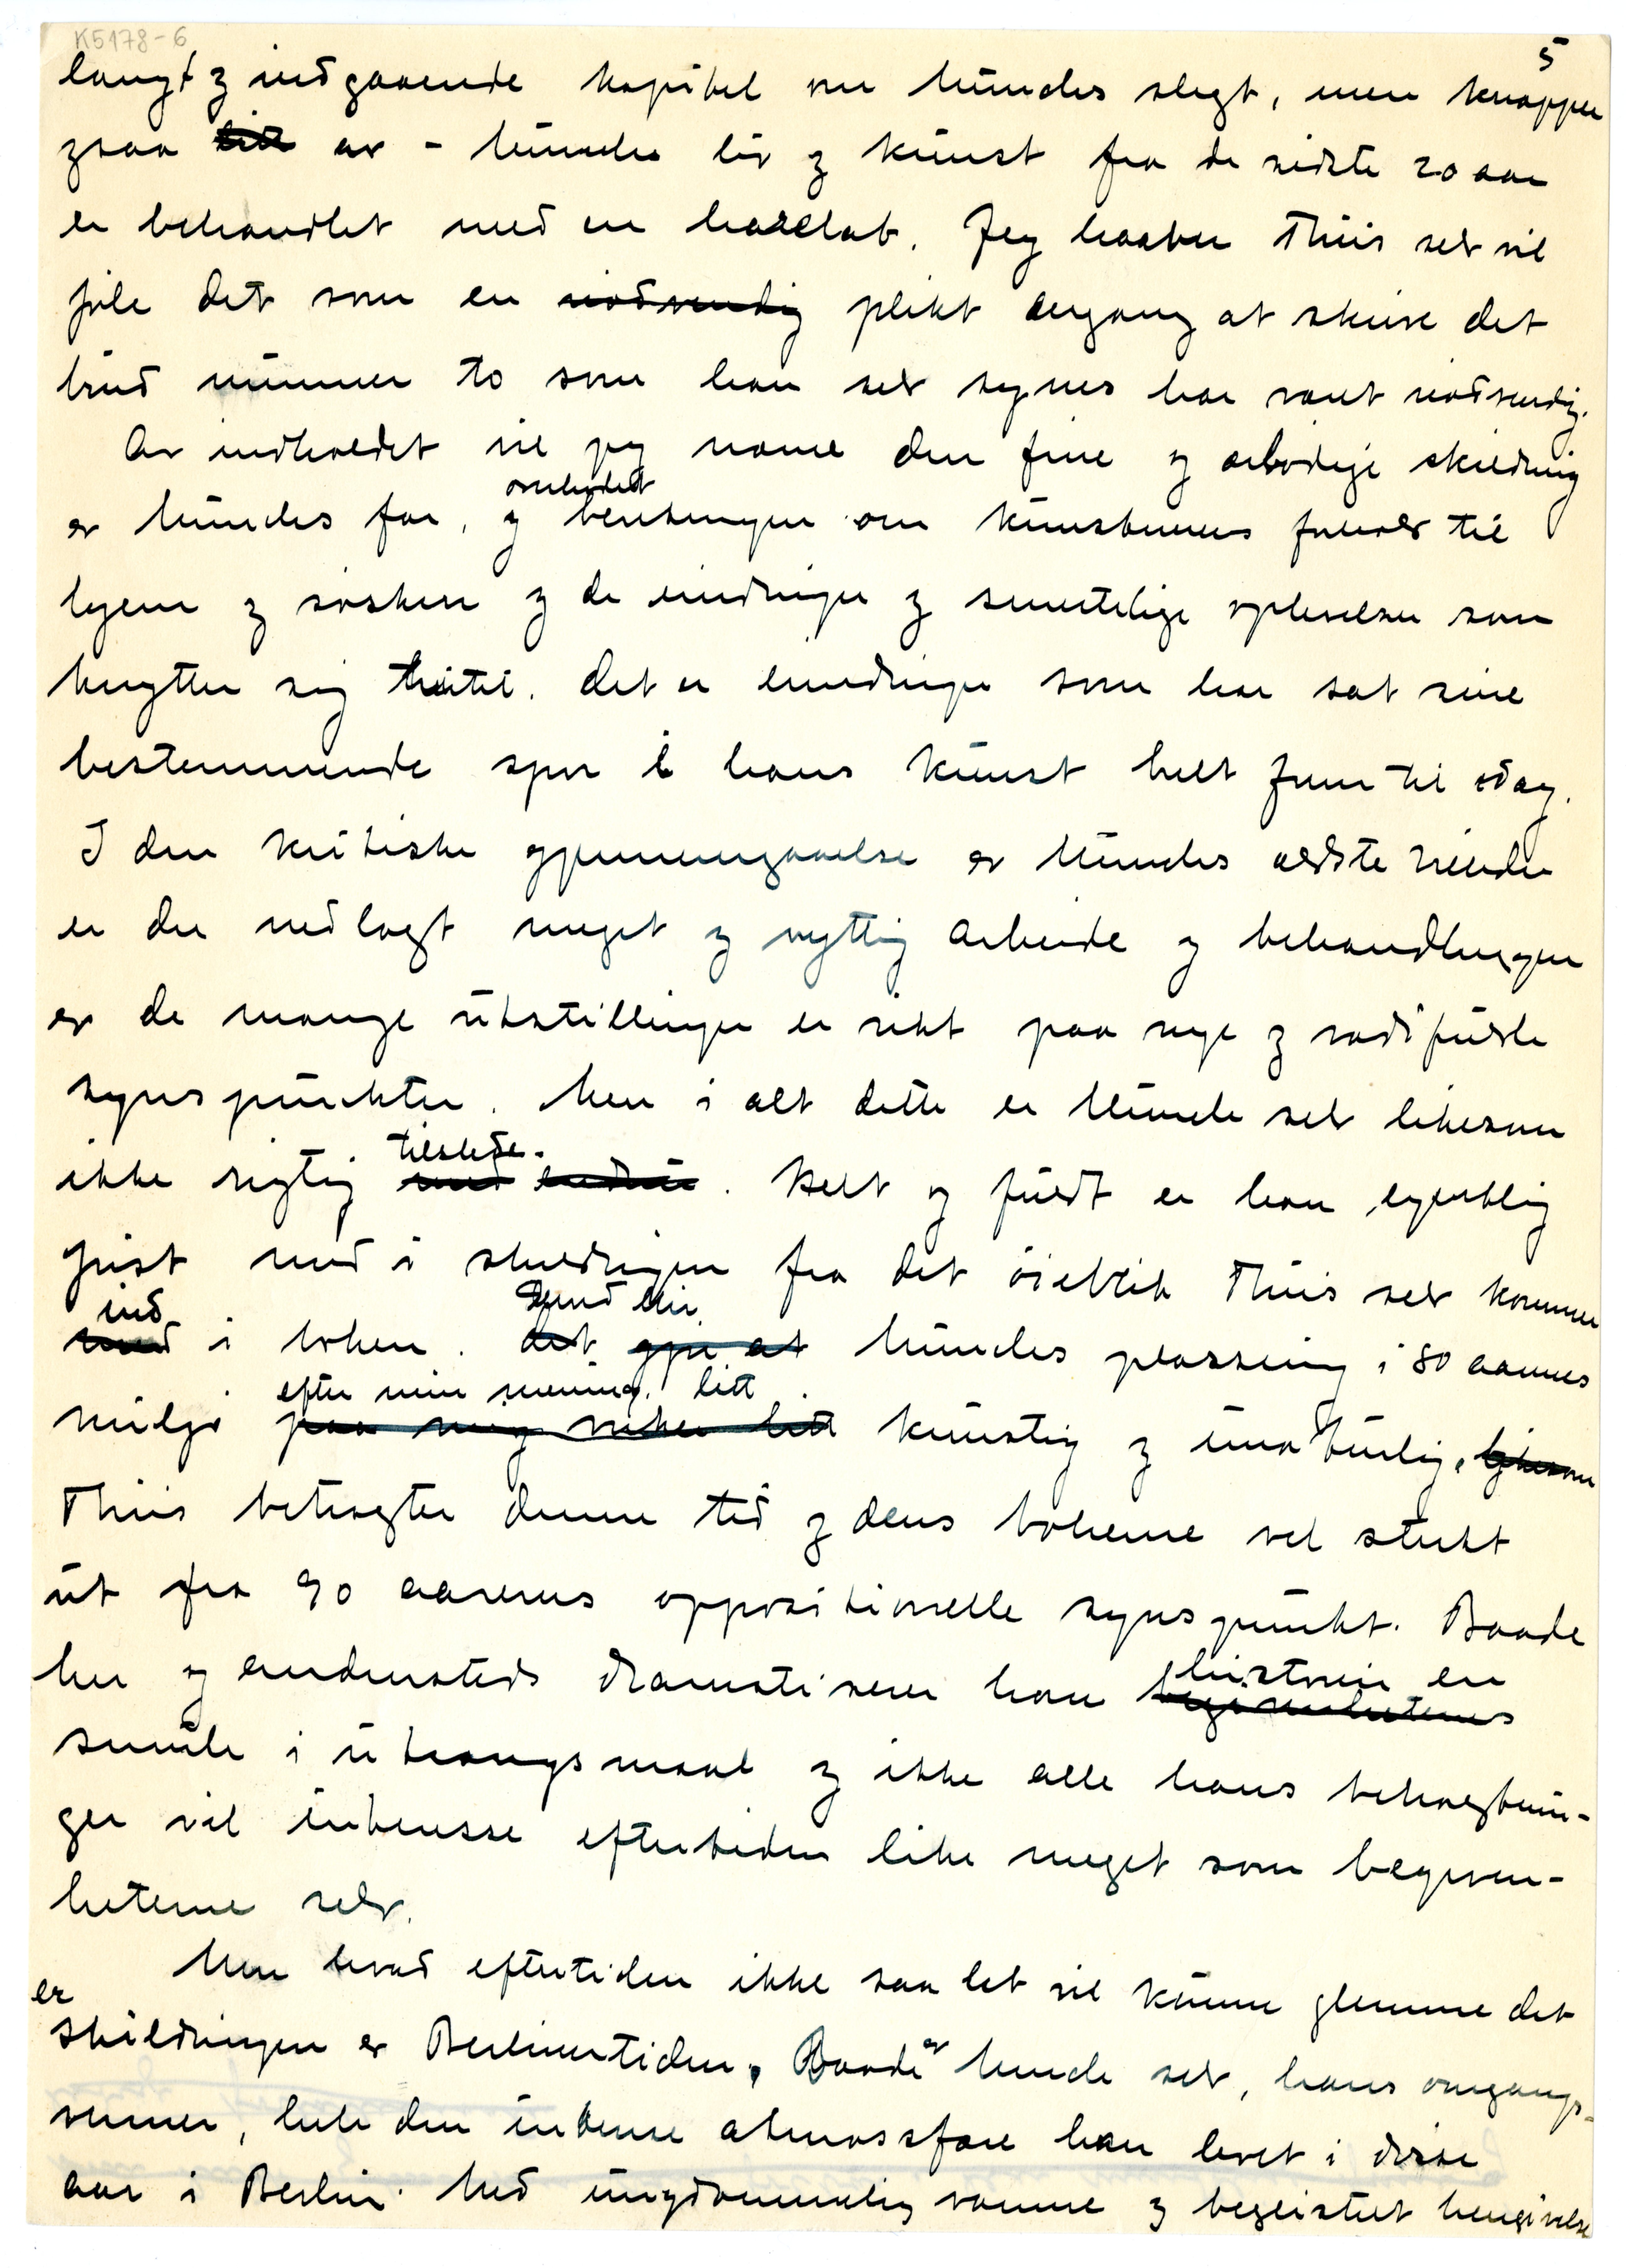 K5178-6
5
langt og indgaaende kapitel om Munchs slegt, men knapper
ogsaa litt av - Munchs liv og kunst fra de sidste 20 aar
er behandlet med en harelab. Jeg haaber Thiis selv vil
føle det som en nødvendig plikt engang at skrive det
bind nummer to som han selv synes har været nødvendig.
Av indholdet vil jeg nævne den fine og ærbødige skildring
omhyggelig
av Munchs far, og beretningen om kunstnerens forhold til
hjem og søsken og de erindringer og smertelige oplevelser som
knytter sig hertil. Det er erindringer som har sat sine
bestemmende spor i hans kunst helt frem til idag.
I den kritiske gjennemgaaelse av Munchs ældste billeder
er der nedlagt meget og nyttig arbeide og behandlingen
av de mange utstillinger er rikt paa nye og rødi fulde
synspunkter. Men i alt dette er Munch selv likesom
tilstede.
ikke rigtig med endnu. Helt og fuldt er han egentlig
først med i skildringen fra det øieblik Thiis selv kommer
ind
Derved blir
med i boken. det gjør at Munchs plassering i 80 aarenes
efter min mening litt
miljø paa mig virker litt kunstig og unaturlig, likesom
Thiis betragter denne tid og dens boheme vel sterkt
ut fra 90 aarenes oppositionelle synspunkt. Baade
historien en
her og andensteds dramatiserer han begivenheterne
smule i utrangsmaal og ikke alle hans betragtnin-
ger vil interesse eftertiden like meget som begiven-
heterne selv.
Men hvad eftertiden ikke saa let vil kunne glemme det
er
skildringen av Berlinertiden, Baade av Munch selv, hans omgangs-
venner, hele den intense atmosfære han levet i disse
aar i Berlin. Med ungdommelig varme og begeistret hengivelse